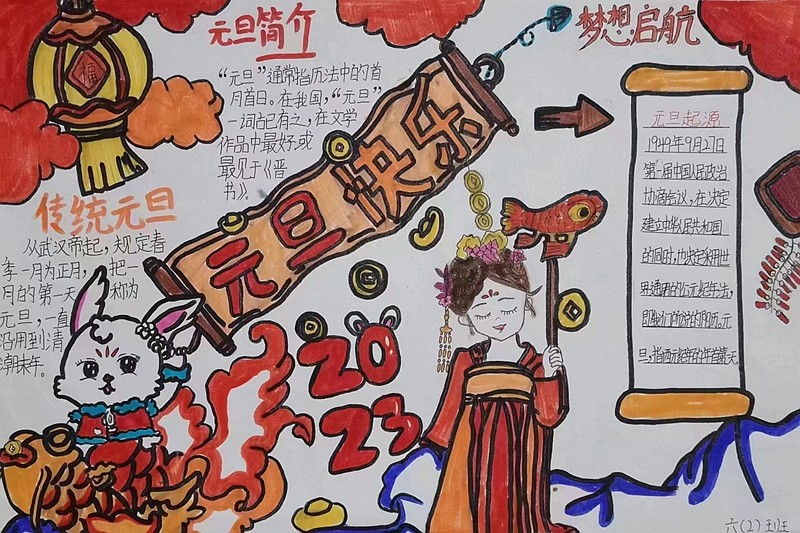 福
元旦简介
“元旦”通常指历法中的首
月首日。在我国，“元旦”
一词古已有之，在文学
作品中最好或
最见于《晋
书》。
传统元旦
从武汉帝起，规定春
季一月为正月，把一
月的第一天称为
元旦，一直
沿用到清
潮末年。
元旦快乐
2023
梦想启航
元旦起源
1949年9月27日
第一届中国人民政治
协商会议，在决定
建立中华人民共和国
的同时，也决定采用世
界通用的公元纪年法，
即我们所说的阳历。元
旦，指西元纪年的年首第一天
六(2)班